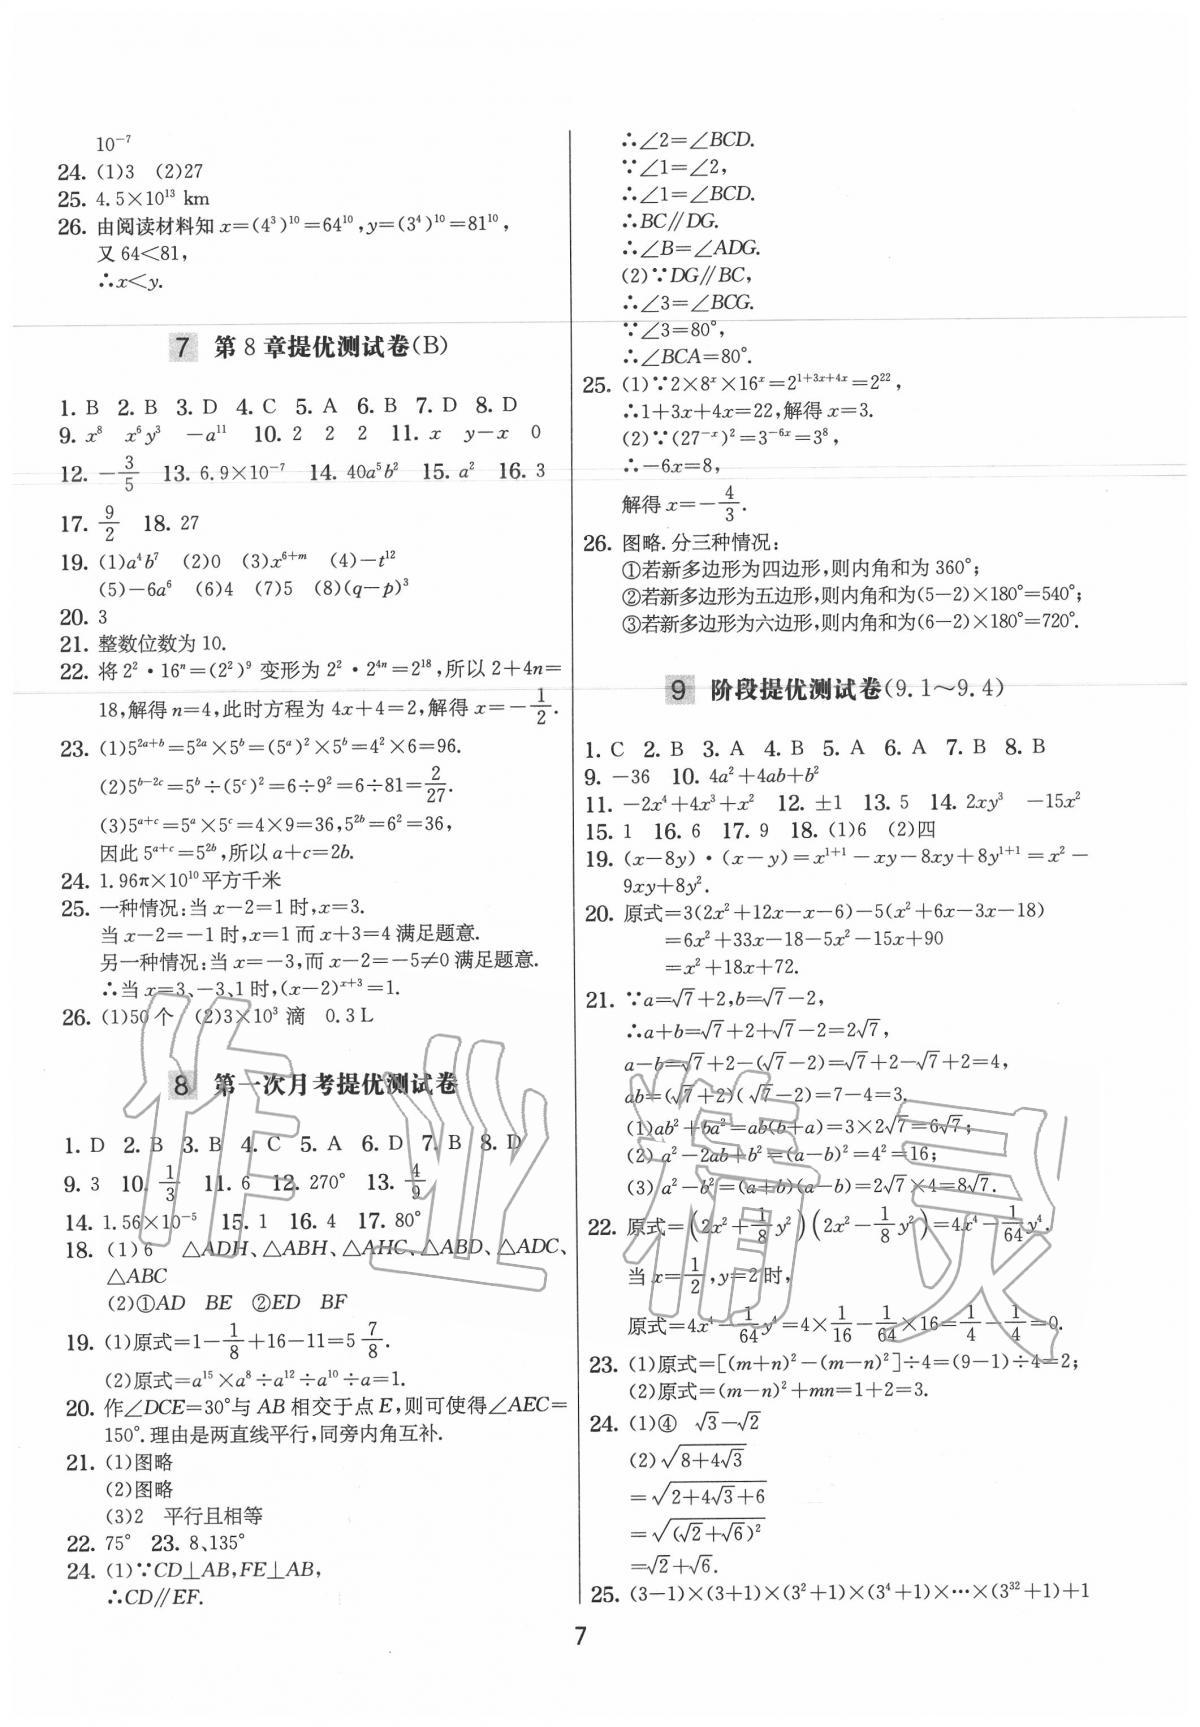 10⁻⁷
24. (1)3 (2)27
25. 4.5×10¹³ km
26. 由阅读材料知 x=(4³)¹⁰=64¹⁰,y=(3⁴)¹⁰=81¹⁰,
又 64<81,
∴x<y.
7 第 8 章提优测试卷(B)
1. B 2. B 3. D 4. C 5. A 6. B 7. D 8. D
9. x⁸ x⁶y³ −a¹¹ 10. 2 2 2 11. x y−x 0
12. −3/5 13. 6.9×10⁻⁷ 14. 40a⁵b² 15. a² 16. 3
17. 9/2 18. 27
19. (1)a⁴b⁷ (2)0 (3)x⁶⁺ᵐ (4)−t¹²
(5)−6a⁶ (6)4 (7)5 (8)(q−p)³
20. 3
21. 整数位数为 10.
22. 将 2²·16ⁿ=(2²)⁹ 变形为 2²·2⁴ⁿ=2¹⁸,所以 2+4n=
18,解得 n=4,此时方程为 4x+4=2,解得 x=−1/2.
23. (1)5^(2a+b)=5^(2a)×5^b=(5^a)²×5^b=4²×6=96.
(2)5^(b−2c)=5^b÷(5^c)²=6÷9²=6÷81=2/27.
(3)5^(a+c)=5^a×5^c=4×9=36,5^(2b)=6²=36,
因此 5^(a+c)=5^(2b),所以 a+c=2b.
24. 1.96π×10¹⁰平方千米
25. 一种情况:当 x−2=1 时,x=3.
当 x−2=−1 时,x=1 而 x+3=4 满足题意.
另一种情况:当 x=−3,而 x−2=−5≠0 满足题意.
∴当 x=3、−3、1 时,(x−2)^(x+3)=1.
26. (1)50 个 (2)3×10³ 滴 0.3 L
8 第一次月考提优测试卷
1. D 2. B 3. B 4. C 5. A 6. D 7. B 8. D
9. 3 10. 1/3 11. 6 12. 270° 13. 4/9
14. 1.56×10⁻⁵ 15. 1 16. 4 17. 80°
18. (1)6 △ADH、△ABH、△AHC、△ABD、△ADC、
△ABC
(2)①AD BE ②ED BF
19. (1)原式=1−1/8+16−11=5 7/8.
(2)原式=a¹⁵×a⁸÷a¹²÷a¹⁰÷a=1.
20. 作∠DCE=30°与 AB 相交于点 E,则可使得∠AEC=
150°.理由是两直线平行,同旁内角互补.
21. (1)图略
(2)图略
(3)2 平行且相等
22. 75° 23. 8、135°
24. (1)∵CD⊥AB,FE⊥AB,
∴CD∥EF.
∴∠2=∠BCD.
∵∠1=∠2,
∴∠1=∠BCD.
∴BC∥DG.
∴∠B=∠ADG.
(2)∵DG∥BC,
∴∠3=∠BCG.
∵∠3=80°,
∴∠BCA=80°.
25. (1)∵2×8ˣ×16ˣ=2^(1+3x+4x)=2²²,
∴1+3x+4x=22,解得 x=3.
(2)∵(27⁻ˣ)²=3⁻⁶ˣ=3⁸,
∴−6x=8,
解得 x=−4/3.
26. 图略.分三种情况:
①若新多边形为四边形,则内角和为 360°;
②若新多边形为五边形,则内角和为(5−2)×180°=540°;
③若新多边形为六边形,则内角和为(6−2)×180°=720°.
9 阶段提优测试卷(9.1～9.4)
1. C 2. B 3. A 4. B 5. A 6. A 7. B 8. B
9. −36 10. 4a²+4ab+b²
11. −2x⁴+4x³+x² 12. ±1 13. 5 14. 2xy³ −15x²
15. 1 16. 6 17. 9 18. (1)6 (2)四
19. (x−8y)·(x−y)=x¹⁺¹−xy−8xy+8y¹⁺¹=x²−
9xy+8y².
20. 原式=3(2x²+12x−x−6)−5(x²+6x−3x−18)
=6x²+33x−18−5x²−15x+90
=x²+18x+72.
21. ∵a=√7+2,b=√7−2,
∴a+b=√7+2+√7−2=2√7,
a−b=√7+2−(√7−2)=√7+2−√7+2=4,
ab=(√7+2)(√7−2)=7−4=3.
(1)ab²+ba²=ab(b+a)=3×2√7=6√7;
(2) a²−2ab+b²=(a−b)²=4²=16;
(3) a²−b²=(a+b)(a−b)=2√7×4=8√7.
22. 原式=(2x²+1/8y²)(2x²−1/8y²)=4x⁴−1/64y⁴.
当 x=1/2,y=2 时,
原式=4x⁴−1/64y⁴=4×1/16−1/64×16=1/4−1/4=0.
23. (1)原式=[(m+n)²−(m−n)²]÷4=(9−1)÷4=2;
(2)原式=(m−n)²+mn=1+2=3.
24. (1)④ √3−√2
(2)√(8+4√3)
=√(2+4√3+6)
=√((√2+√6)²)
=√2+√6.
25. (3−1)×(3+1)×(3²+1)×(3⁴+1)×…×(3³²+1)+1
7
作业精灵